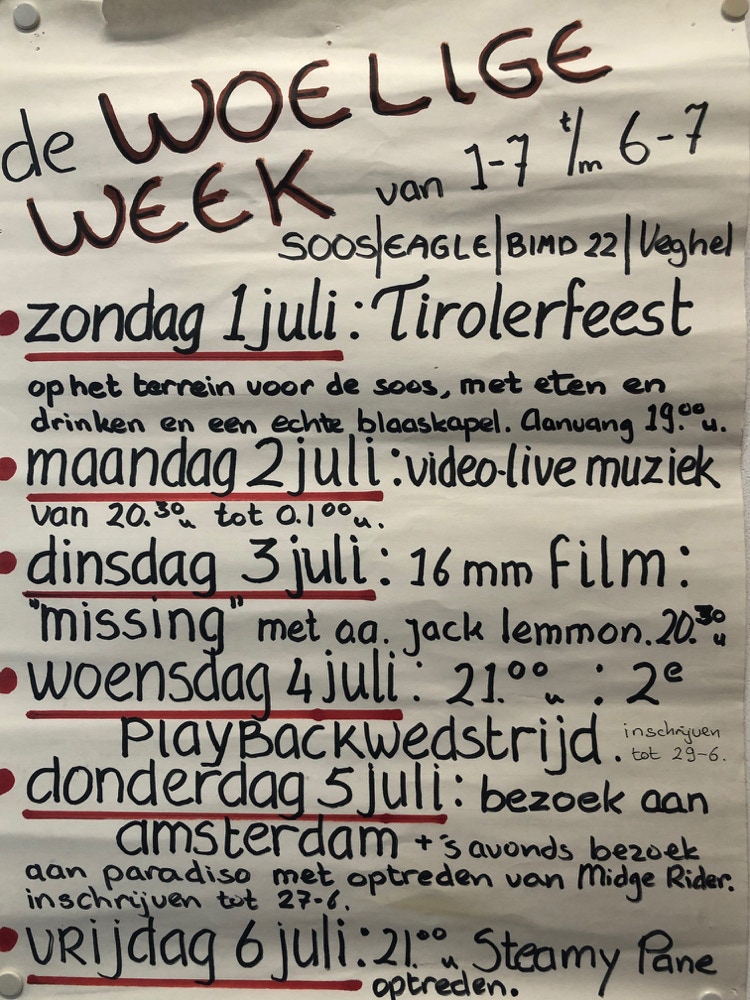 de WOELIGE
WEEK van 1-7 t/m 6-7
SOOS|EAGLE|BIMD 22|Veghel
zondag 1 juli: Tirolerfeest
op het terrein voor de soos, met eten en
drinken en een echte blaaskapel. Aanvang 19.00 u.
maandag 2 juli: video-live muziek
van 20.30 u tot 0.100 u.
dinsdag 3 juli: 16 mm film:
"missing" met aa. jack lemmon. 20.30 u
woensdag 4 juli: 21.00 u : 2e
PlayBackwedstrijd. inschrijven
tot 29-6.
donderdag 5 juli: bezoek aan
amsterdam + 's avonds bezoek
aan paradiso met optreden van Midge Rider.
inschrijven tot 27-6.
vrijdag 6 juli: 21.00 u Steamy Pane
optreden.